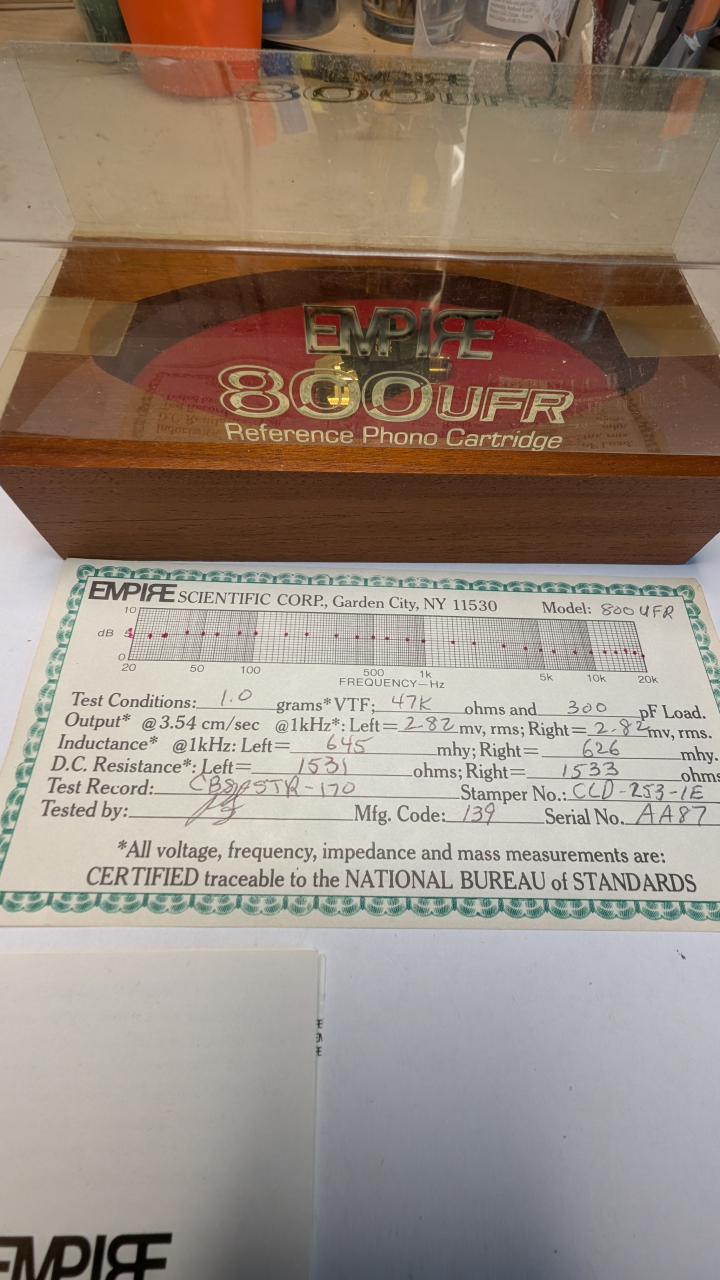 EMPIRE
800UFR
EMPIRE
800UFR
Reference Phono Cartridge
EMPIRE SCIENTIFIC CORP., Garden City, NY 11530 Model: 800 UFR
10
dB 5
0
20 50 100 500 1k 5k 10k 20k
FREQUENCY—Hz
Test Conditions: 1.0 grams*VTF; 47K ohms and 300 pF Load.
Output* @3.54 cm/sec @1kHz*: Left= 2.82 mv, rms; Right= 2.82 mv, rms.
Inductance* @1kHz: Left= 645 mhy; Right= 626 mhy.
D.C. Resistance*: Left= 1531 ohms; Right= 1533 ohms
Test Record: CBS STR-170 Stamper No.: CLD-253-1E
Tested by: Mfg. Code: 139 Serial No. AA87
*All voltage, frequency, impedance and mass measurements are:
CERTIFIED traceable to the NATIONAL BUREAU of STANDARDS
EMPIRE